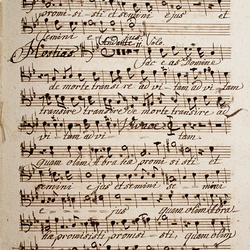 promi si sti et semini e jus et
semini e jus.
Hostias Andante Solo
Fac e as Domine
de morte transire ad vi tam ad vi tam
transire transire de morte transire ad
vi tam ad vi tam
quam olim Abra hæ promi si sti et
semini e jus et semini se mini
e jus quam olim Abra
hæ promisisti promisi sti. quam olim